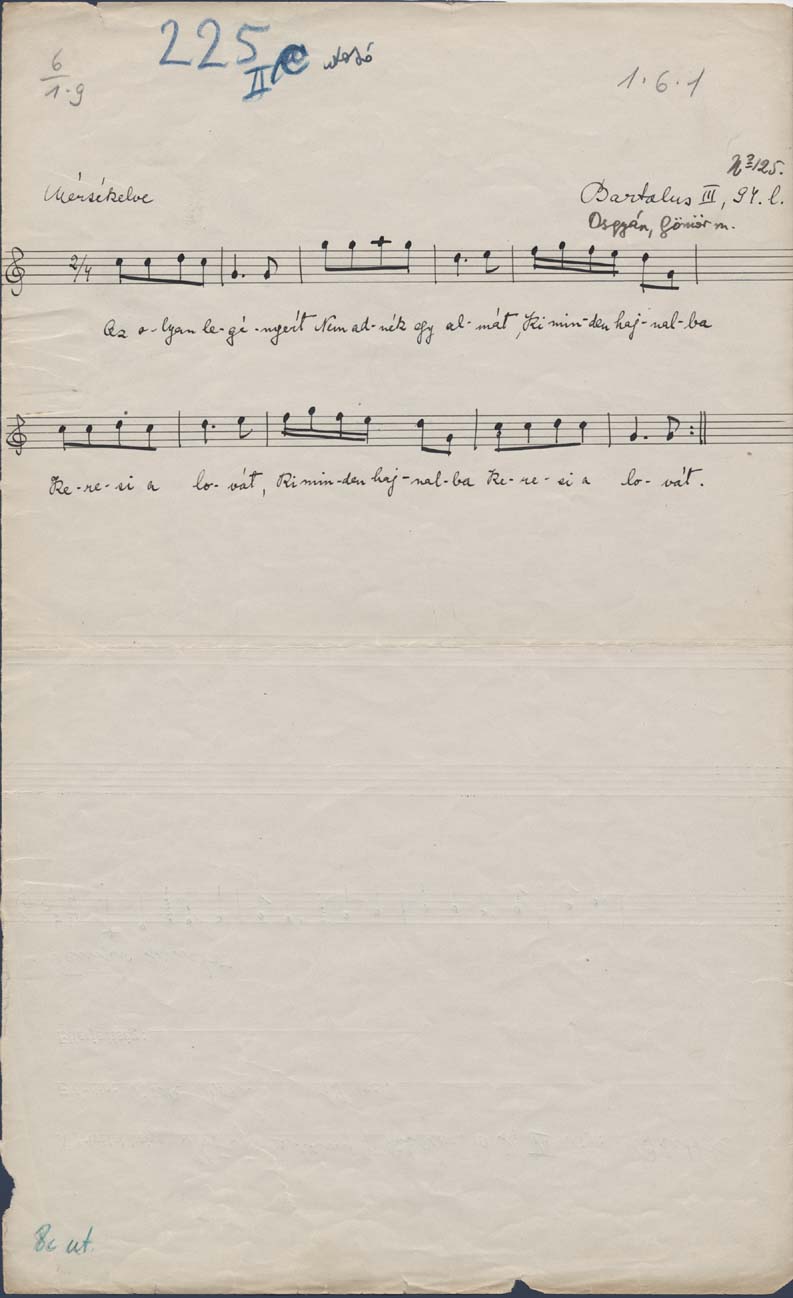 225
6
1·9
II
1·6·1
No 125.
Mérsékelve
Bartalus III, 94. l.
Osgyán, Gömör m.
2/4
Az o-lyan le-gé-nyért Nem ad-nék egy al-mát, Ki min-den haj-nal-ba
Ke-re-si a lo-vát, Ki min-den haj-nal-ba Ke-re-si a lo-vát.
8c ut.